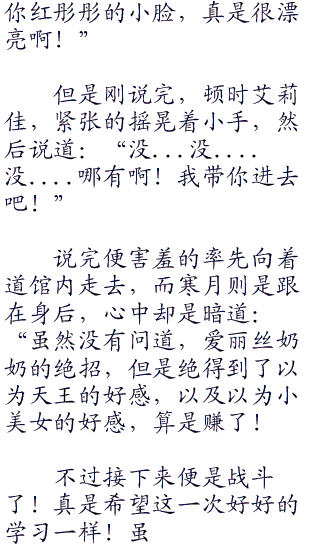 你红彤彤的小脸，真是很漂
亮啊！”
但是刚说完，顿时艾莉
佳，紧张的摇晃着小手，然
后说道：“没...没....
没....哪有啊！我带你进去
吧！”
说完便害羞的率先向着
道馆内走去，而寒月则是跟
在身后，心中却是暗道：
“虽然没有问道，爱丽丝奶
奶的绝招，但是绝得到了以
为天王的好感，以及以为小
美女的好感，算是赚了！
不过接下来便是战斗
了！真是希望这一次好好的
学习一样！虽